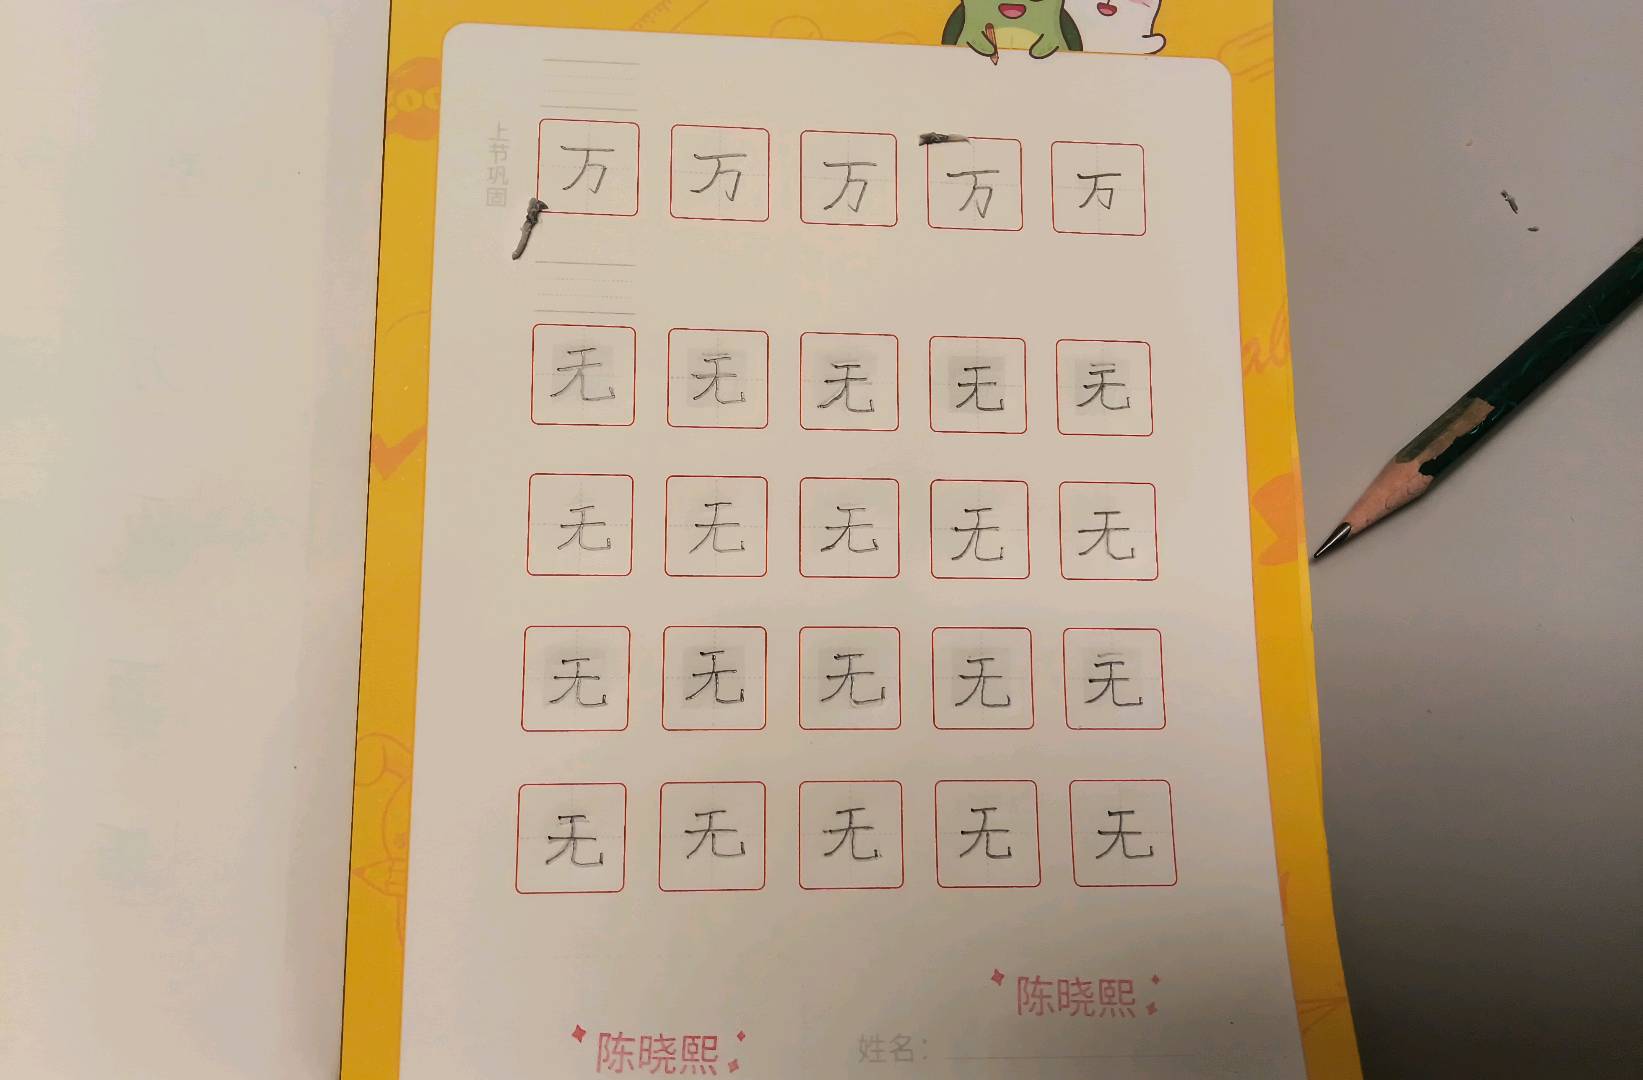 上节巩固
万 万 万 万 万
无 无 无 无 无
无 无 无 无 无
无 无 无 无 无
无 无 无 无 无
陈晓熙
陈晓熙
姓名：